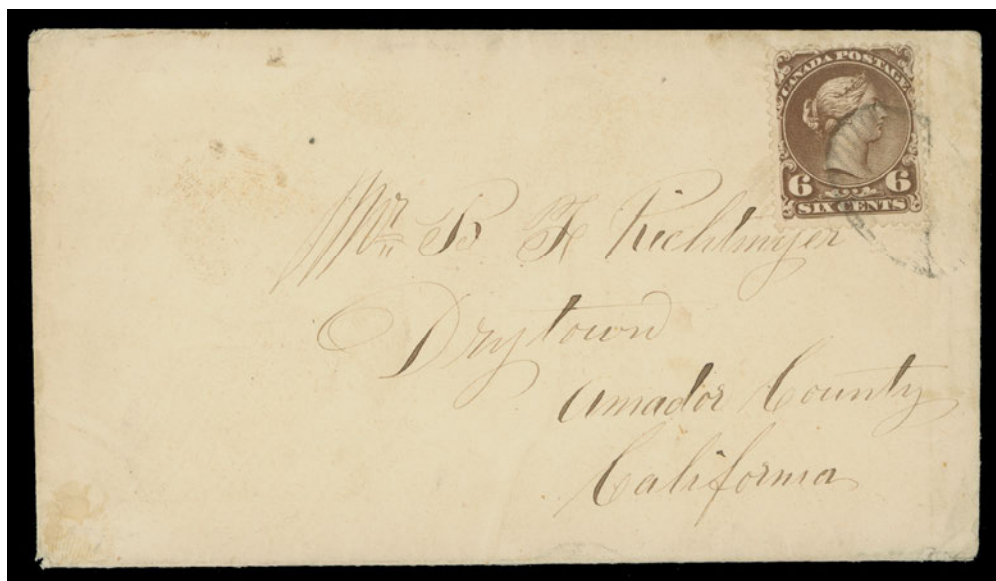 CANADA POSTAGE
6 6
SIX CENTS
Mr. B F Richtmyer
Drytown
Amador County
California